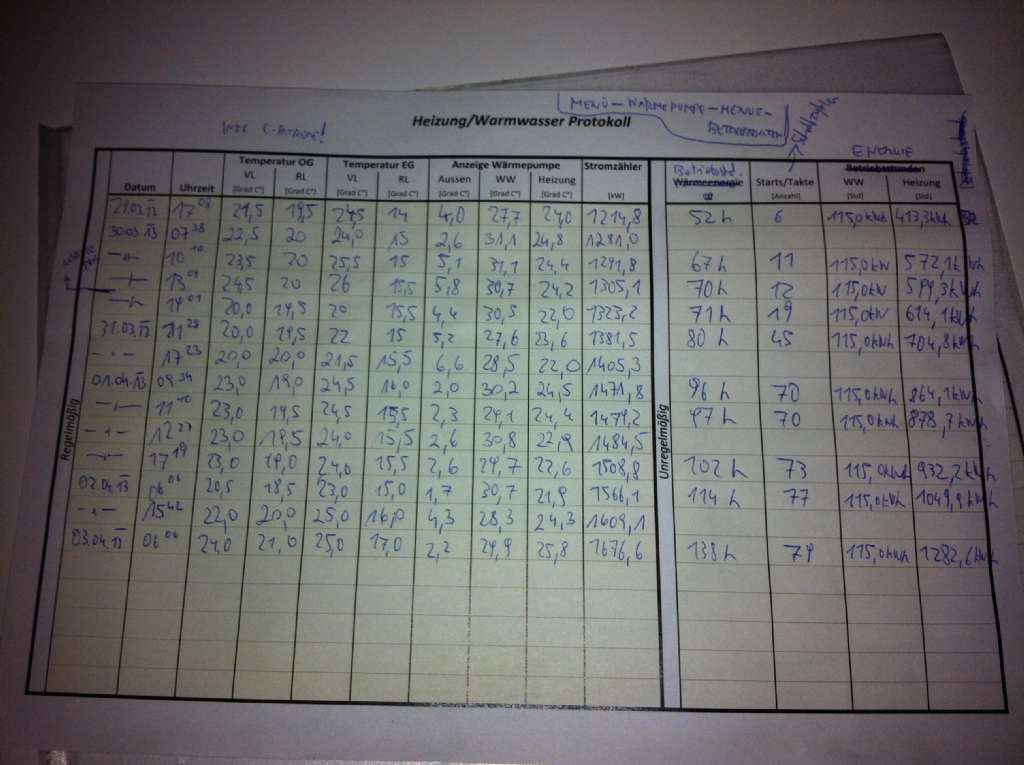 MENÜ – WÄRMEPUMPE – MENUE –
BETRIEBSDATEN
Schaltzyklen
Heizung/Warmwasser Protokoll
ENERGIE
Temperatur OG Temperatur EG Anzeige Wärmepumpe Stromzähler Betriebsstd. Wärmeenergie Starts/Takte Betriebsstunden
Datum Uhrzeit VL RL VL RL Aussen WW Heizung WW Heizung
[Grad C°] [Grad C°] [Grad C°] [Grad C°] [Grad C°] [Grad C°] [Grad C°] [kW] [Anzahl] [Std] [Std]
17 08 21,5 19,5 24,5 14 4,0 27,7 24,0 1214,8 52 h 6 115,0 kWh 413,3 kWh
30.03.13 07 38 22,5 20 24,0 15 2,6 31,1 24,8 1281,0
-"- 10 10 23,5 20 25,5 15 5,1 31,1 24,4 1291,8 67 h 11 115,0 kW 572,1 kWh
-"- 13 01 24,5 20 26 15,5 5,8 30,7 24,2 1305,1 70 h 12 115,0 kW 594,3 kWh
-"- 19 01 20,0 19,5 20 15,5 4,4 30,5 22,0 1323,2 71 h 19 115,0 kW 614,1 kWh
31.03.13 11 28 20,0 19,5 22 15 5,2 27,6 23,6 1381,5 80 h 45 115,0 kWh 704,8 kWh
-"- 17 23 20,0 20,0 21,5 15,5 6,6 28,5 22,0 1405,3
01.04.13 09 34 23,0 19,0 24,5 16,0 2,0 30,2 24,5 1471,8 96 h 70 115,0 kWh 864,1 kWh
-"- 11 10 23,0 19,5 24,5 15,5 2,3 29,1 24,4 1479,2 97 h 70 115,0 kWh 878,7 kWh
-"- 12 27 23,0 19,5 24,0 15,5 2,6 30,8 22,9 1484,5
-"- 17 19 23,0 19,0 24,0 15,5 2,6 29,7 22,6 1508,8 102 h 73 115,0 kWh 932,2 kWh
02.04.13 06 06 20,5 18,5 23,0 15,0 1,7 30,7 21,9 1566,1 114 h 77 115,0 kWh 1049,9 kWh
-"- 15 42 22,0 20,0 25,0 16,0 4,3 28,3 24,3 1609,1
03.04.13 06 00 24,0 21,0 25,0 17,0 2,2 29,9 25,8 1676,6 138 h 79 115,0 kWh 1282,6 kWh
Regelmäßig
Unregelmäßig